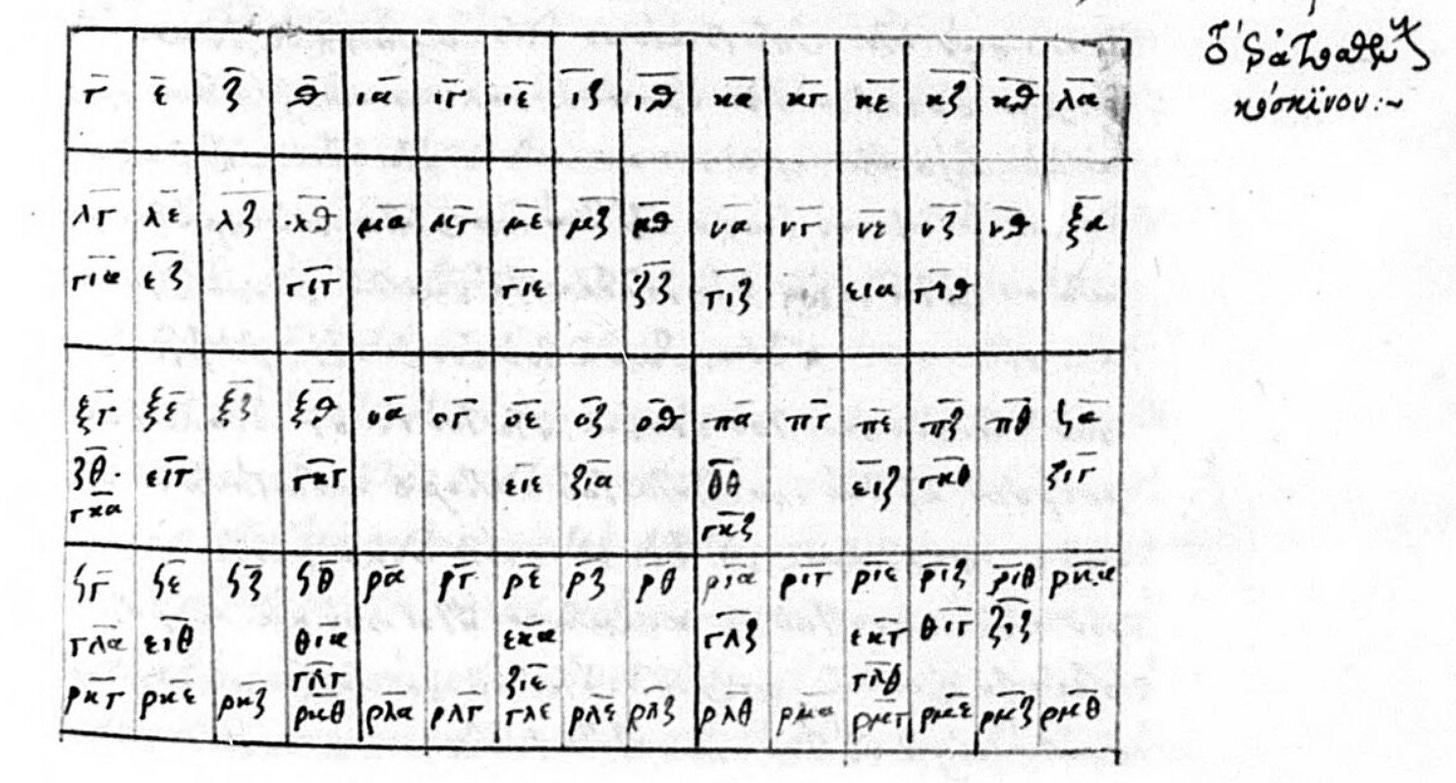 κόσκϊνον:~
γ ε ζ θ ια ιγ ιε ιζ ιθ κα κγ κε κζ κθ λα
λγ λε λζ λθ μα μγ με μζ μθ να νγ νε νζ νθ ξα
για εζ γιγ γιε ζζ γιζ εια γιθ
ξγ ξε ξζ ξθ οα ογ οε οζ οθ πα πγ πε πζ πθ ϟα
ζθ· ειγ γκγ ειε ζια θθ ειζ γκθ ζιγ
γκα γκζ
ϟγ ϟε ϟζ ϟθ ρα ργ ρε ρζ ρθ ρια ριγ ριε ριζ ριθ ρκα
γλα ειθ θια εκα γλζ εκγ θιγ ζιζ
γλγ ζιε γλθ
ρκγ ρκε ρκζ ρκθ ρλα ρλγ γλε ρλε ρλζ ρλθ ρμα ρμγ ρμε ρμζ ρμθ